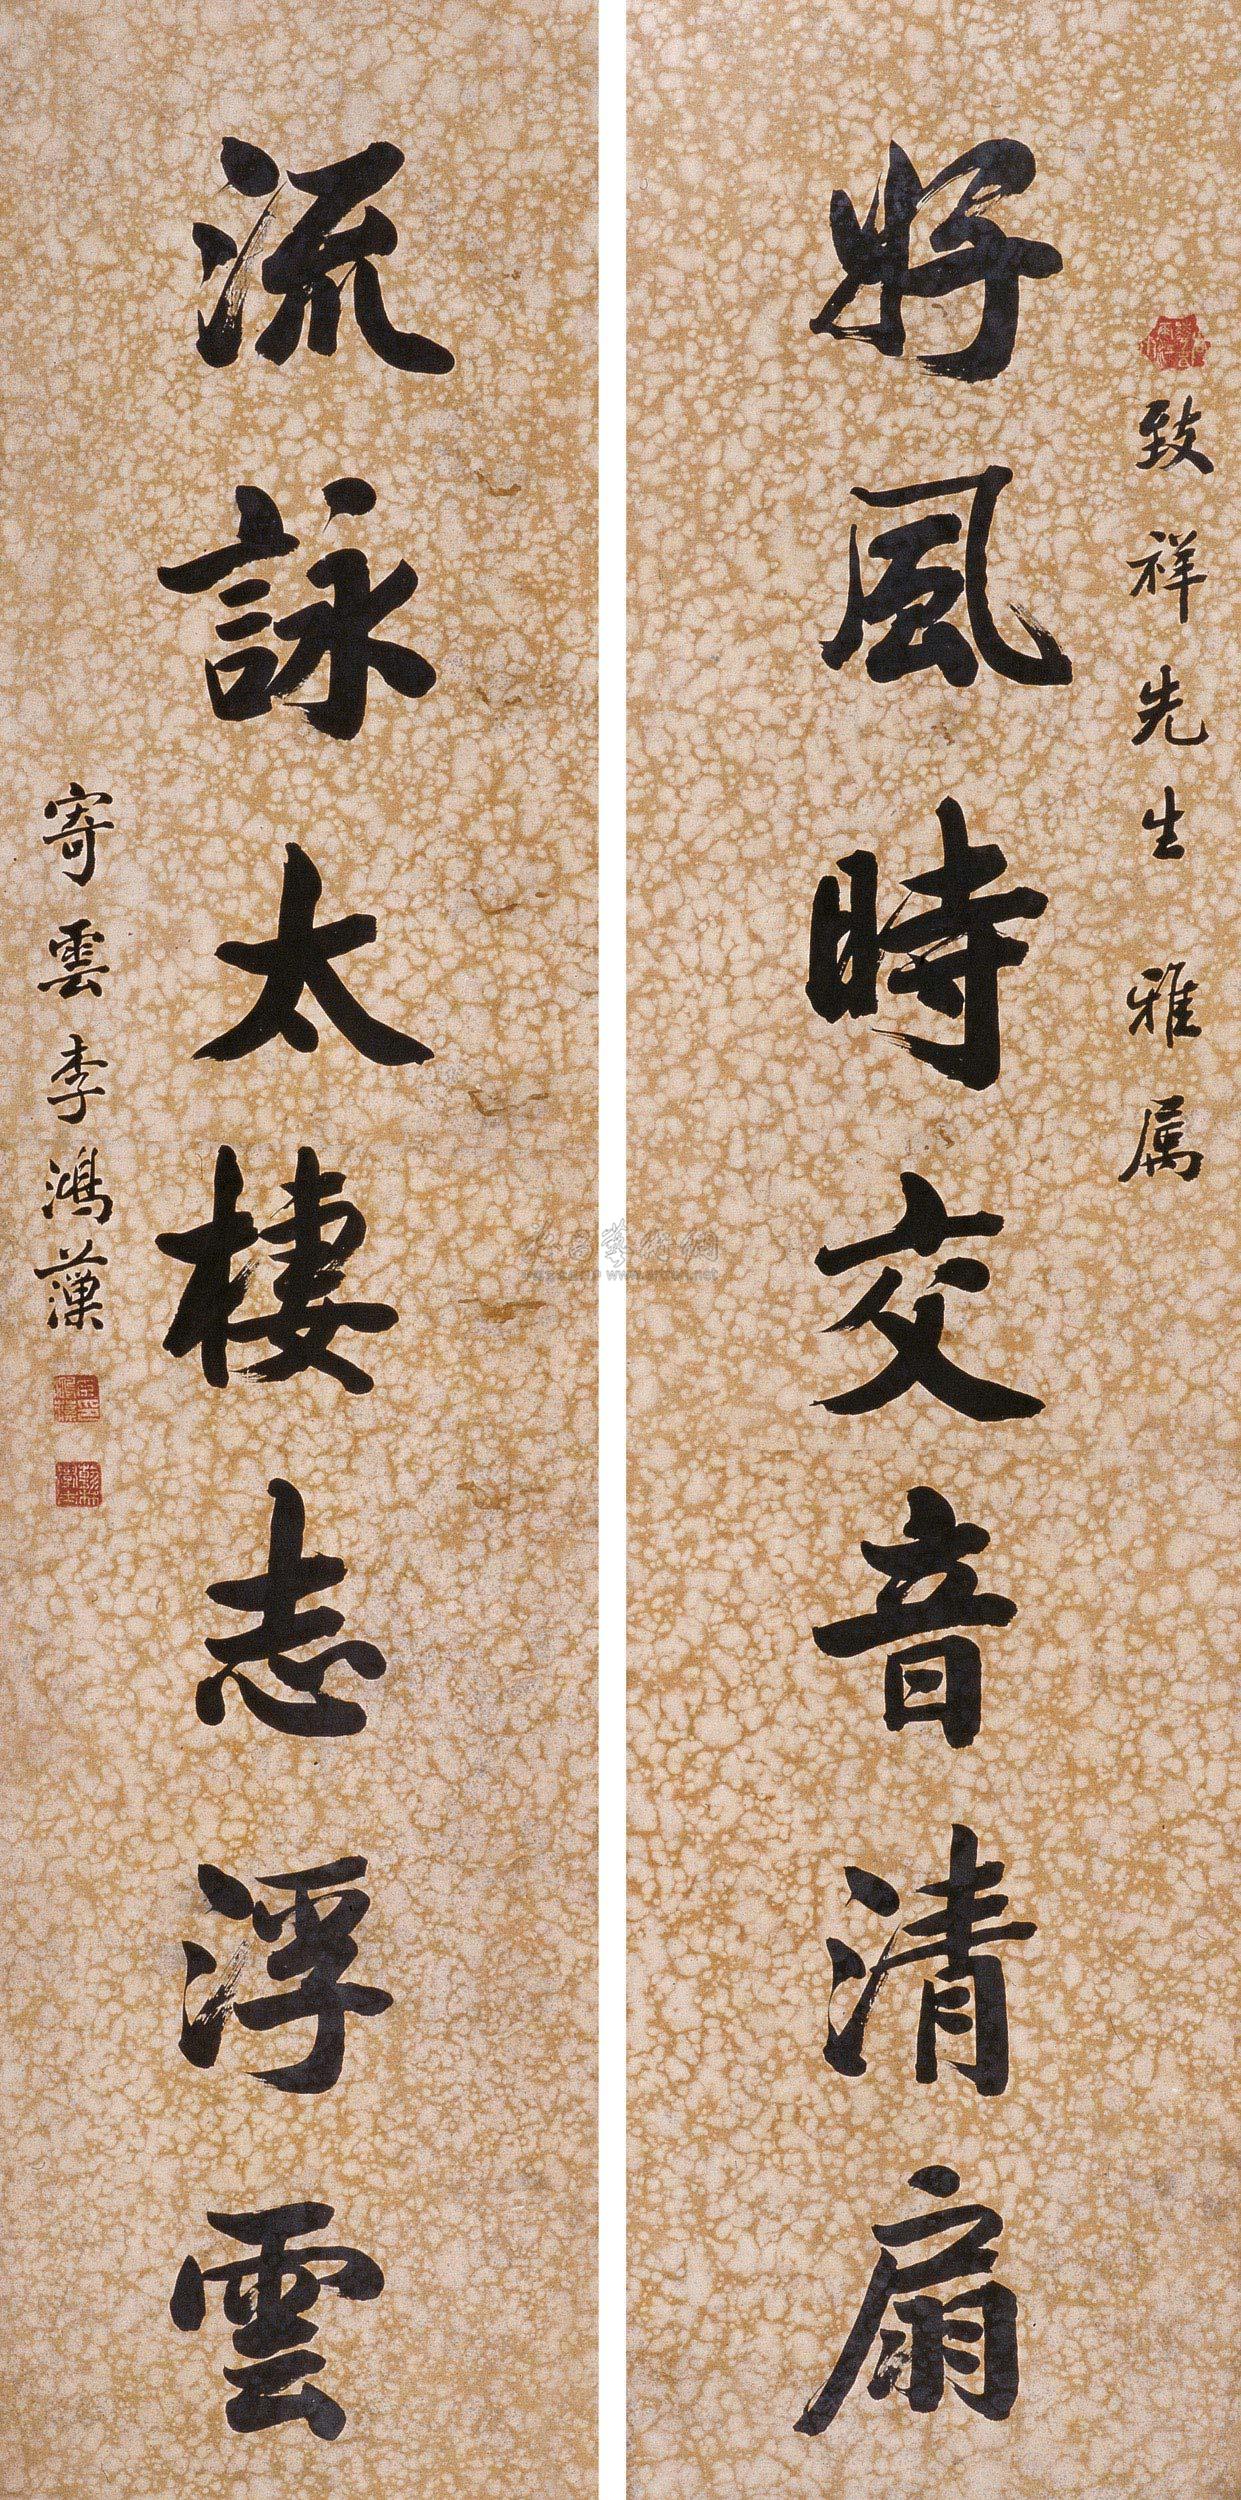 致祥先生雅属
好風時交音清扇
流詠太棲志浮雲
寄雲李鴻藻
www.artron.net